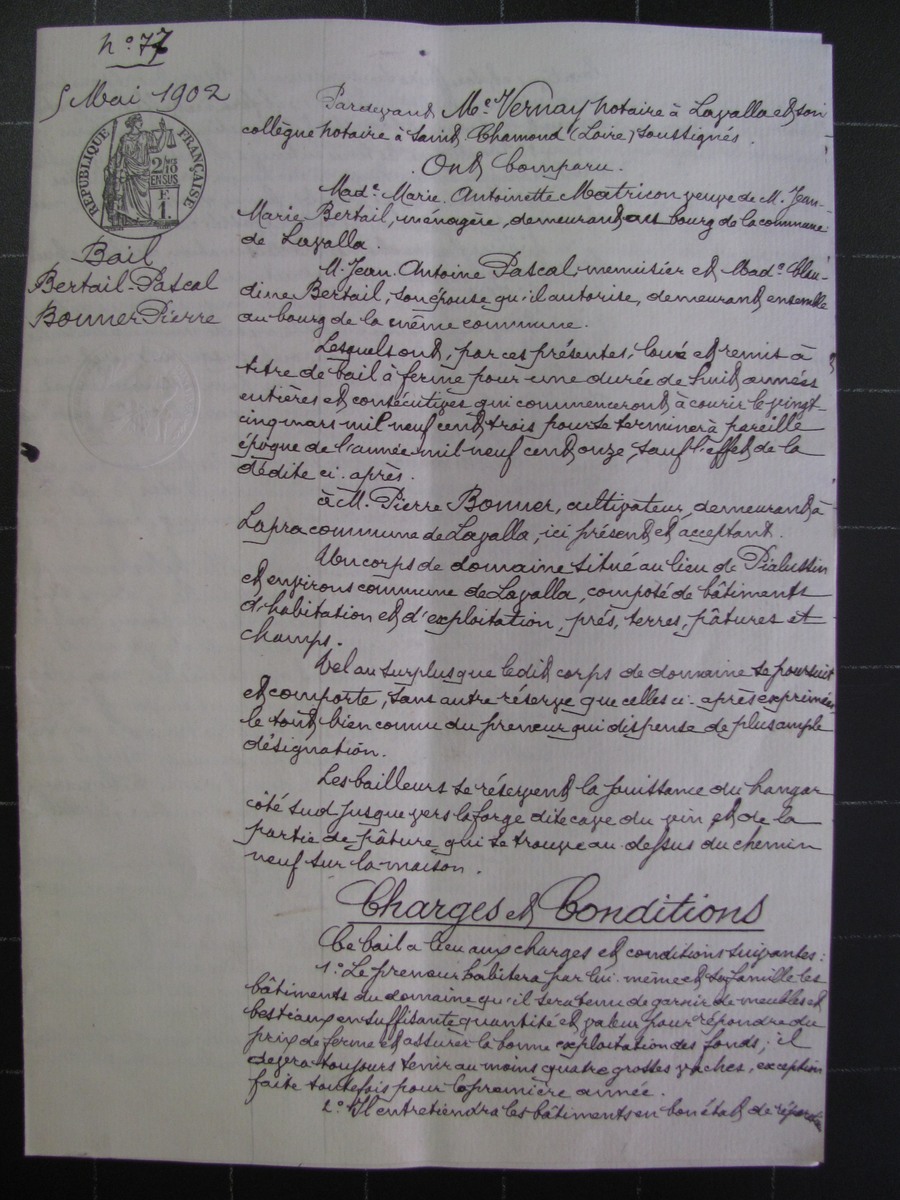 n° 77
5 Mai 1902
RÉPUBLIQUE FRANÇAISE
2/10
EN SUS
F.
1.
Bail
Bertail-Pascal
Bonner Pierre
Pardevant Me Vernay notaire à Lavalla et son
collègue notaire à Saint Chamond (Loire) soussignés.
Ont Comparu.
Made Marie Antoinette Matricon veuve de M. Jean-
Marie Bertail, ménagère, demeurant au bourg de la commune
de Lavalla.
M. Jean Antoine Pascal menuisier et Made Clau-
dine Bertail, son épouse qu'il autorise, demeurant ensemble
au bourg de la même commune.
Lesquels ont, par ces présentes, loué et remis à
titre de bail à ferme pour une durée de huit années
entières et consécutives qui commenceront à courir le vingt-
cinq mars mil neuf cent trois pour se terminer à pareille
époque de l'année mil neuf cent onze, sauf l'effet de la
dédite ci-après.
à M. Pierre Bonner, cultivateur, demeurant à
Lapra commune de Lavalla, ici présent et acceptant.
Un corps de domaine situé au lieu de Pialussin
et environs commune de Lavalla, composé de bâtiments
d'habitation et d'exploitation, prés, terres, pâtures et
champs.
Tel au surplus que ledit corps de domaine se poursuit
et comporte, sans autre réserve que celles ci-après exprimées,
le tout bien connu du preneur qui dispense de plus ample
désignation.
Les bailleurs se réservent la jouissance du hangar
côté sud jusque vers la forge dite cave du vin et de la
partie de pâture qui se trouve au-dessus du chemin
neuf sur la maison.
Charges et Conditions
Ce bail a lieu aux charges et conditions suivantes:
1° Le preneur habitera par lui-même et sa famille les
bâtiments du domaine qu'il sera tenu de garnir de meubles et
bestiaux en suffisante quantité et valeur pour répondre du
prix de ferme et assurer la bonne exploitation des fonds; il
devra toujours tenir au moins quatre grosses vaches, exception
faite toutefois pour la première année.
2° Il entretiendra les bâtiments en bon état de